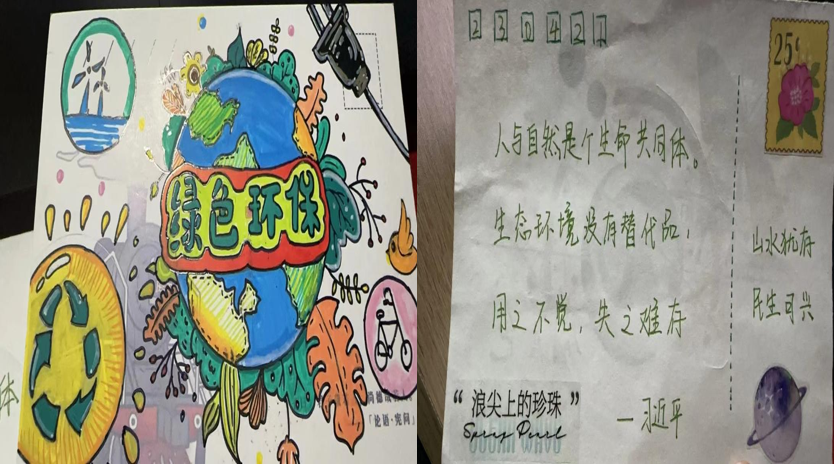 绿色环保
体
「论语·宪问」
230427
25¢
人与自然是个生命共同体。
生态环境没有替代品,
用之不觉,失之难存
—习近平
山水犹存
民生可兴
“浪尖上的珍珠”
Spray Pearl
OCEAN WAVE